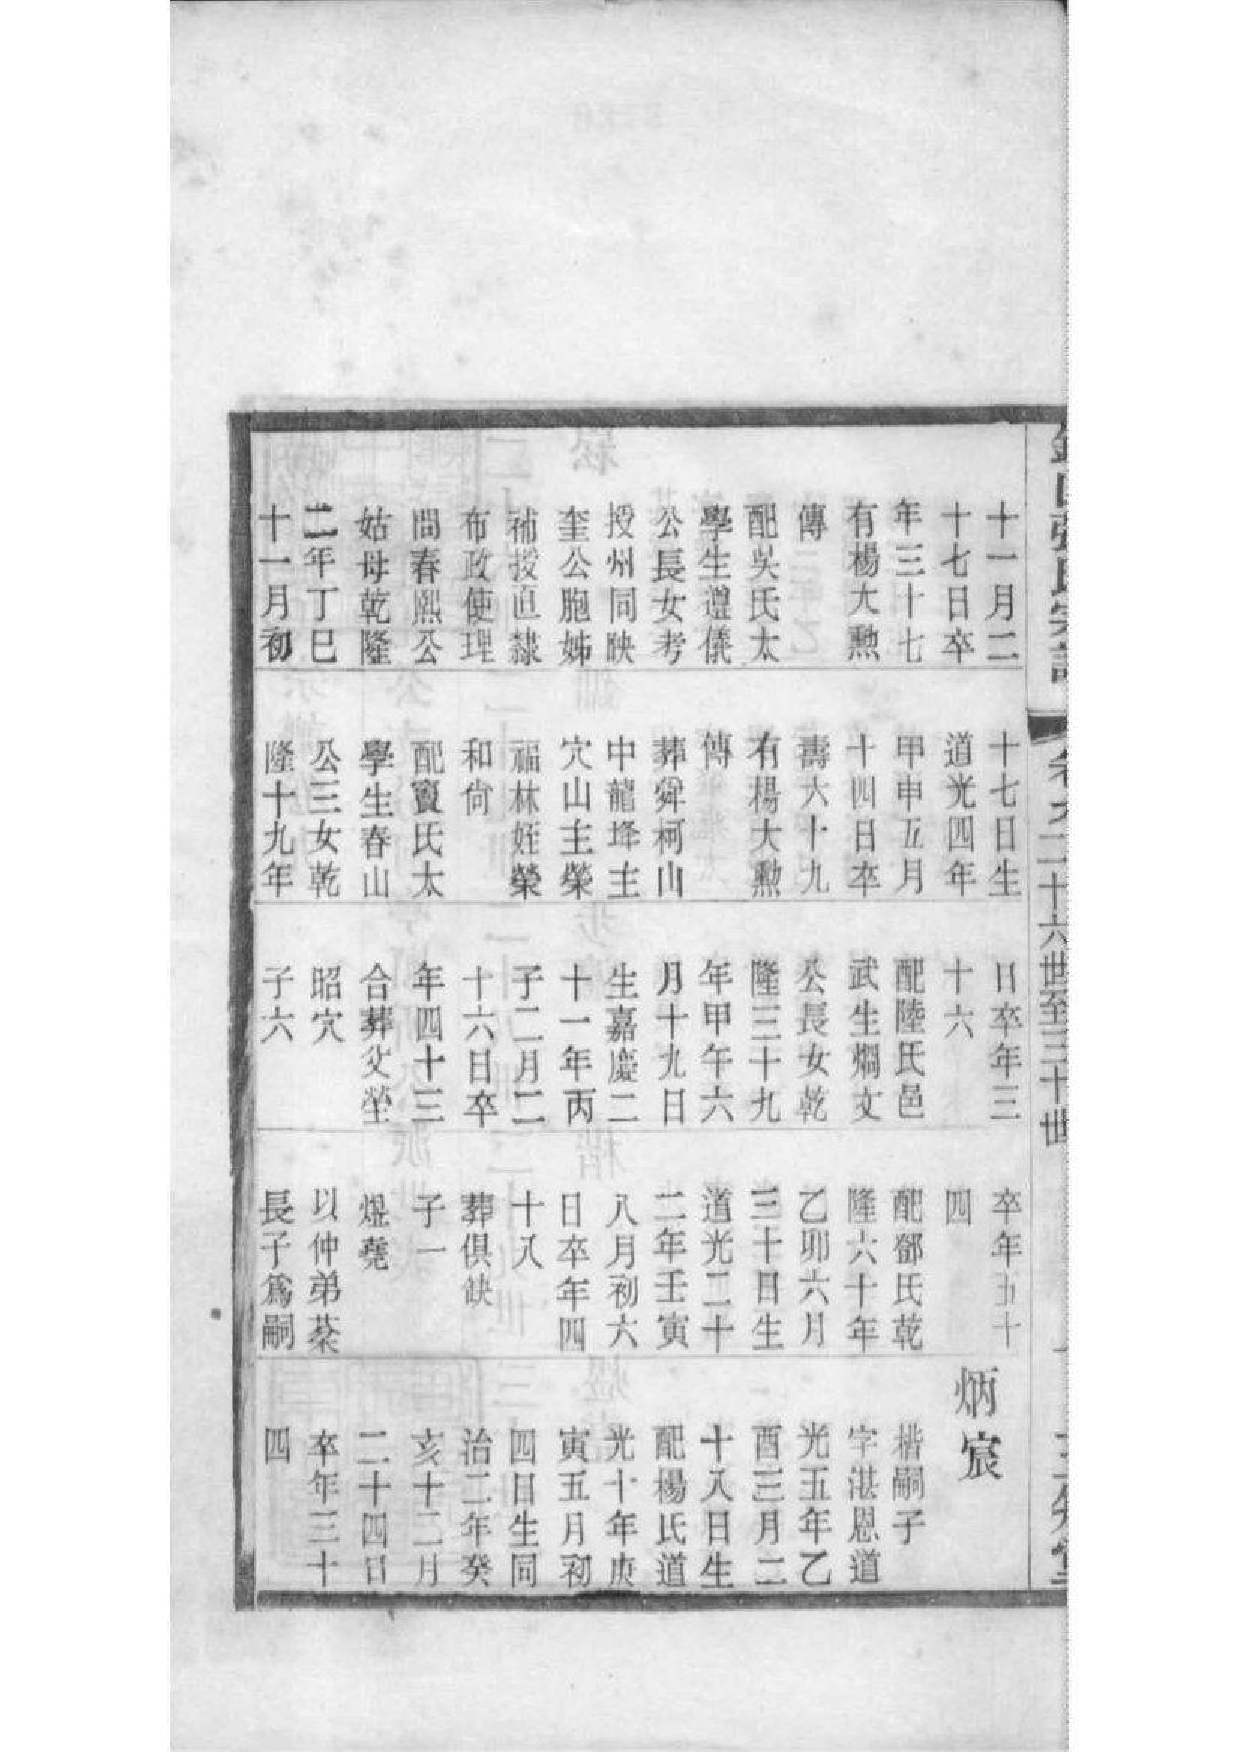 卷九二十六世至三十世
十一月二
十七日卒
年三十七
有楊大勲
傳
配吳氏太
學生遵儀
公長女考
授州同映
奎公胞姊
補授直隸
布政使理
問春熙公
姑母乾隆
二年丁巳
十一月初
十七日生
道光四年
甲申五月
十四日卒
壽六十九
有楊大勲
傳
葬舜柯山
中龍垶主
穴山主榮
福林姪榮
和尙
配竇氏太
學生春山
公三女乾
隆十九年
日卒年三
十六
配陸氏邑
武生烱文
公長女乾
隆三十九
年甲午六
月十九日
生嘉慶二
十一年丙
子二月二
十六日卒
年四十三
合葬父塋
昭穴
子六
卒年五十
四
配鄧氏乾
隆六十年
乙卯六月
三十日生
道光二十
二年壬寅
八月初六
日卒年四
十八
葬俱缺
子一
煜堯
以仲弟棻
長子爲嗣
炳宸
楷嗣子
字湛恩道
光五年乙
酉三月二
十八日生
配楊氏道
光十年庚
寅五月初
四日生同
治二年癸
亥十二月
二十四日
卒年三十
四